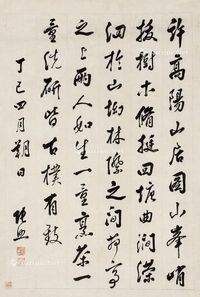 許高陽山居圖山峯峭
拔樹木脩挺回塘曲澗瀠
洄於山坳林隙之間茆亭
之上兩人如生一童烹茶一
童洗研皆古樸有致
丁巳四月朔日